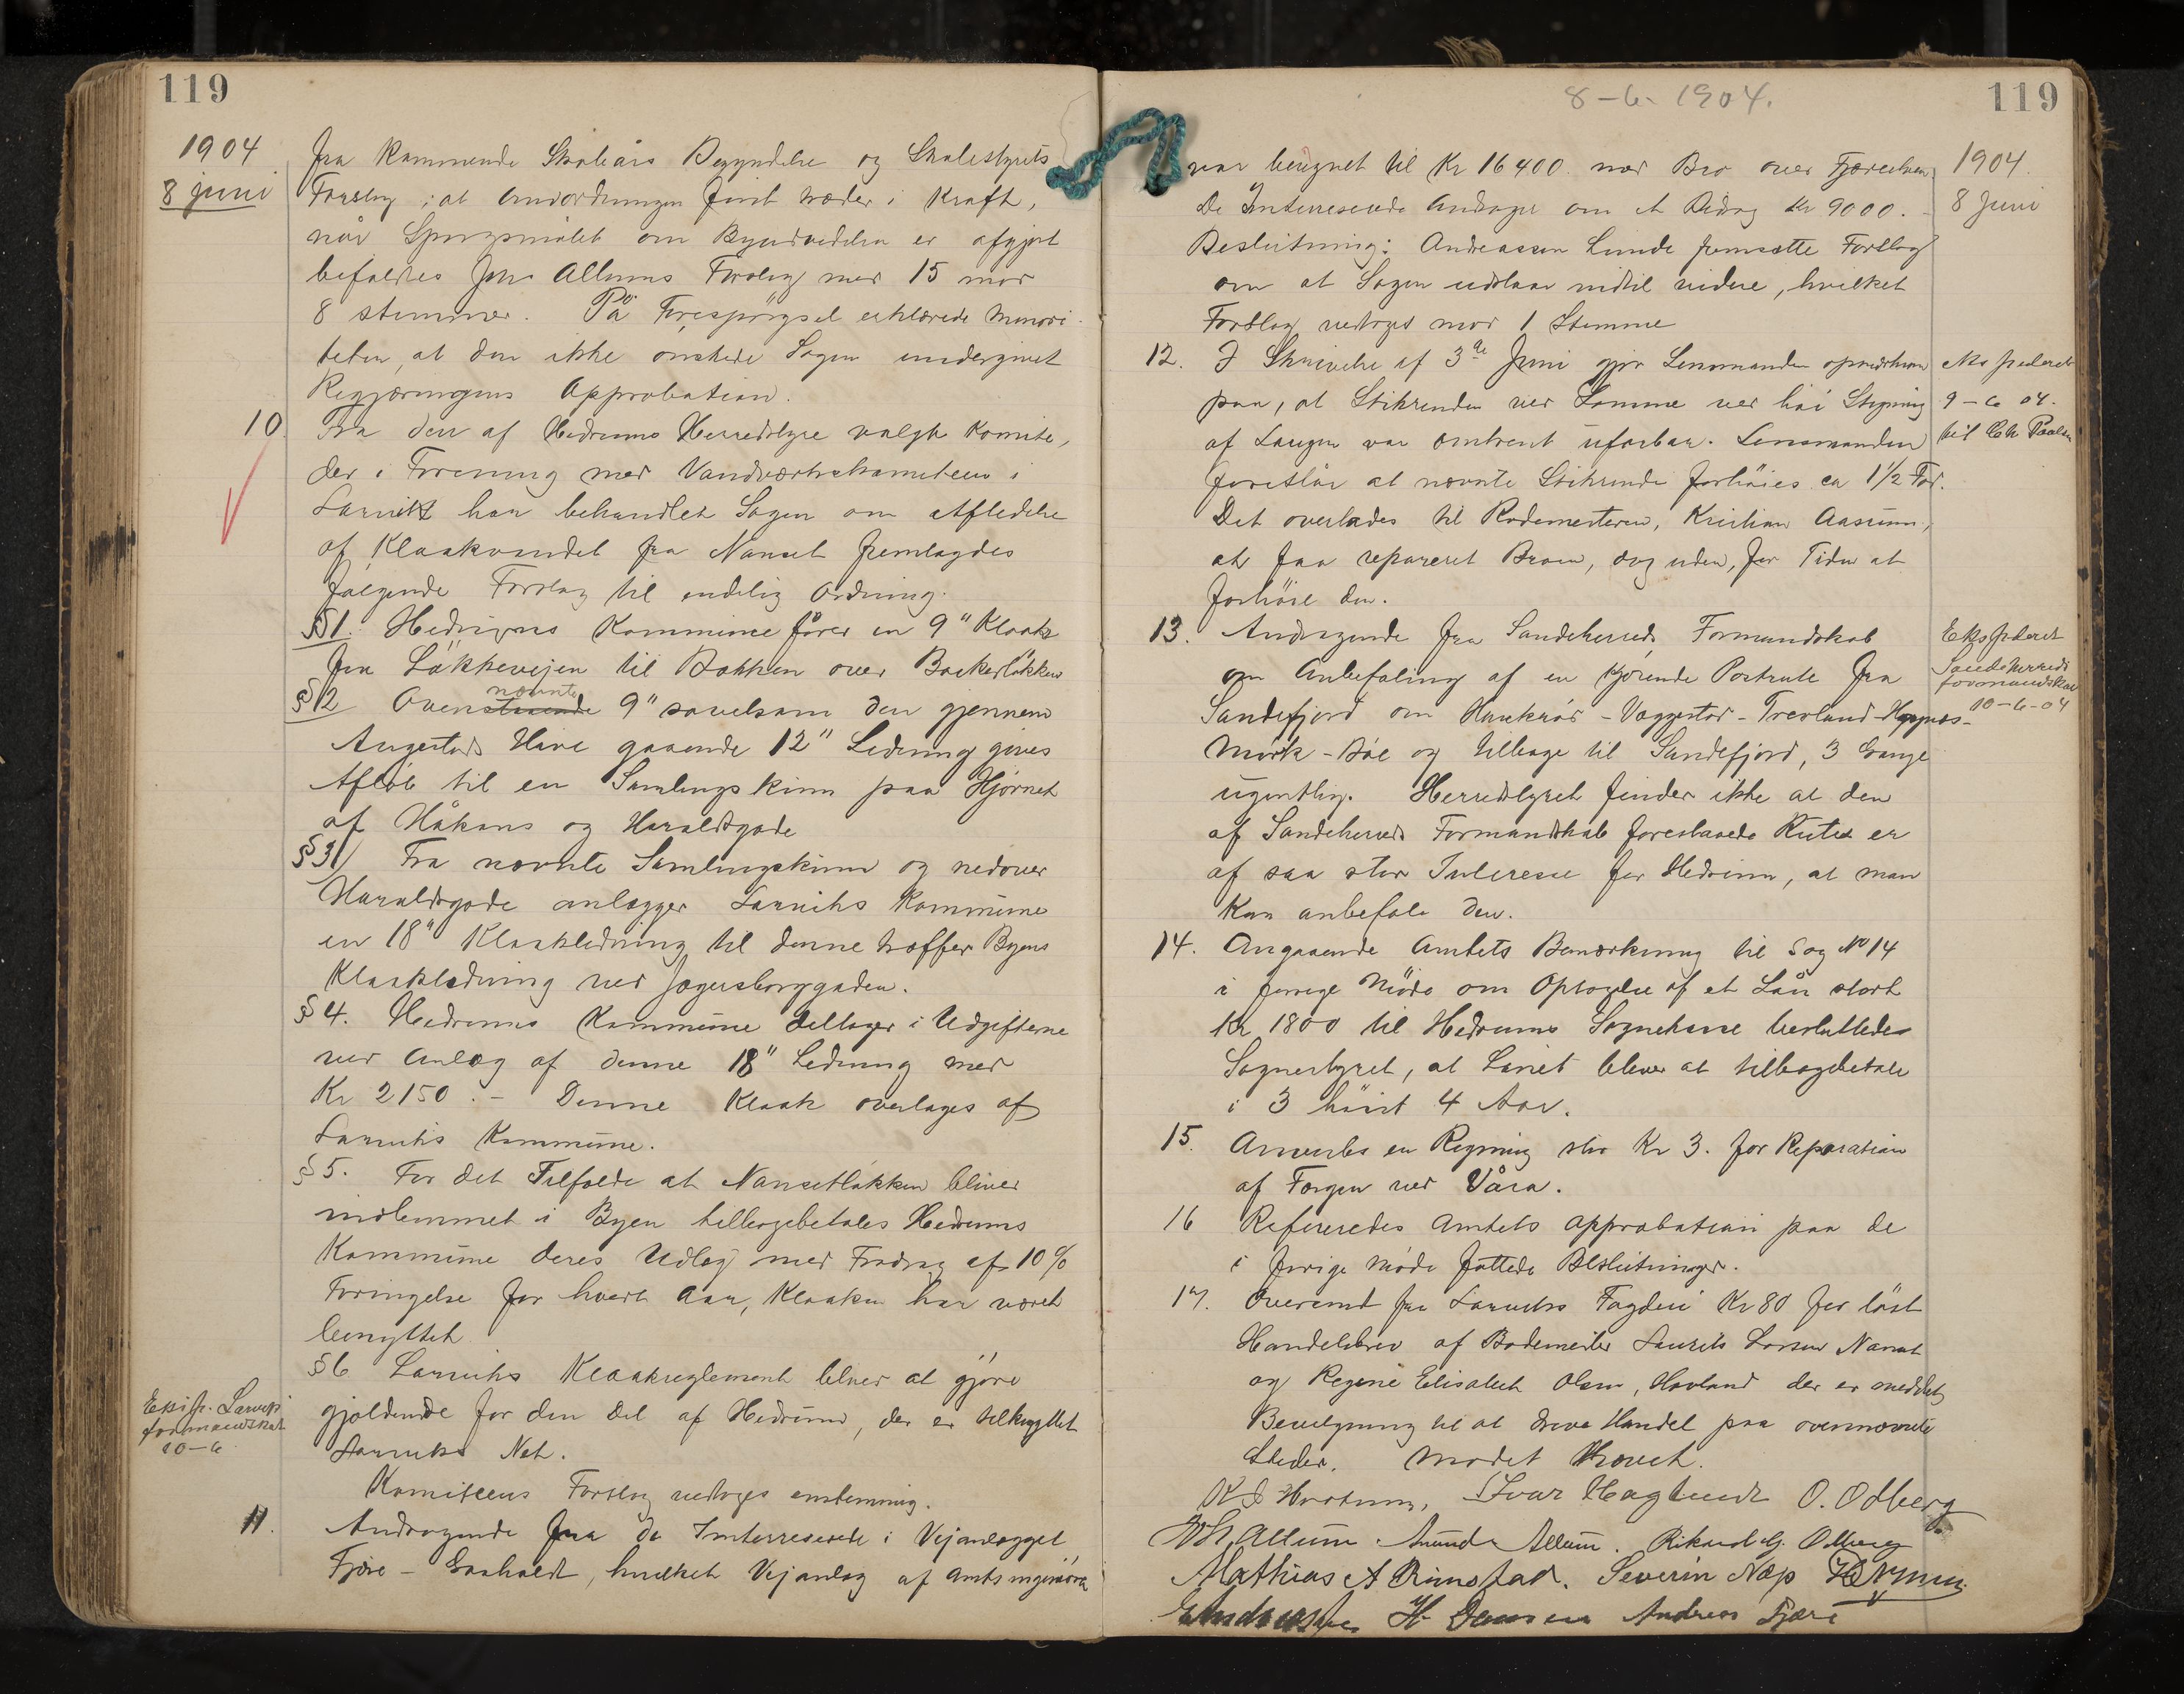 119
1904
8 juni
fra kommende Skoleårs Begyndelse og Skolestyrets
Forslag; at Omordningen först træder i Kraft,
når Spörgsmålet om Byudvidelsen er afgjort
befaldtes Joh. Allums Forslag med 15 mod
8 stemmer. På Forespörgsel erklærede Minori-
teten, at den ikke onskede Sagen undergivet
Regjæringens Approbation.
10. Fra den af Hedrums Herredstyre valgte Komite,
der i Forening med Vandværkskomiteen i
Larvik har behandlet Sagen om Afledelse
af Kloakvandet fra Nanset fremlagdes
folgende Forslag til endelig Ordning.
§1. Hedrums Kommune fører en 9" Kloak
fra Løkkevejen til Bakken over Bøkerløkken
§2 Ovenstaaende nævnte 9" savelsom den gjennem
Angestads Have gaaende 12" Ledning gives
Afløb til en Samlingskum paa Hjørnet
af Håkons og Haraldsgade
§3 Fra nævnte Samlingskum og nedover
Haraldsgade anlægger Larviks Kommune
en 18" Kloakledning til denne træffer Byens
Kloakledning ved Jegersborggaden.
§4. Hedrums Kommune deltager i Udgifterne
ved Anlæg af denne 18" Ledning med
Kr 2150.- Denne Kloak overtages af
Larviks Kommune.
§5. For det Tilfælde at Nansetløkken bliver
indlemmet i Byen tilbagebetales Hedrums
Kommune deres Udlæg med Fradrag af 10%
Foringelse for hvert Aar, Kloaken har været
benyttet
§6 Larviks Kloakreglement bliver at gjøre
gjældende for den Del af Hedrum, der er tilknyttet
Larviks Net.
Eksp. Larviks
formandskab
10-6
Komiteens Forslag vedtoges enstemmig.
11. Andragende fra de Interreserede i Vejanlægget
Fjære - Gaaholdt, hvilket Vejanlæg af Amtsingeniøren
8-6-1904.
119
1904
8 Juni
var beregnet til Kr 16400 med Bro over Fjæreelven
De Interreserede Andrager om et Bidrag Kr 9000.-
Beslutning: Andreassen Lunde fremsatte Forslag
om at Sagen udstaar indtil videre, hvilket
Forslag vedtoges mod 1 Stemme
12. I Skrivelse af 3de Juni gjør Lensmanden opmærksom
paa, at Stikrenden ved Lamme ved høi Stigning
af Laugen var omtrent ufarbar. Lensmanden
foreslår at nævnte Stikrende forhøies ca 1½ Fod.
Det overlades til Rodemesteren, Kristian Aasrum,
at faa repareret Broen, dog uden, for Tiden at
forhöie den.
Ekspederet
9-6 04.
til Chr Paulsen
13. Andragende fra Sandeherreds Formandskab
om Anbefaling af en kjörende Postrute fra
Sandefjord om Haukröd - Vaggestad - Trevland - Høgnes-
Mørk - Bøe og tilbage til Sandefjord, 3 Gange
ugentlig. Herredstyret finder ikke at den
af Sandeherreds Formandskab foreslaaede Rute er
af saa stor Interesse for Hedrum, at man
kan anbefale den.
Ekspederet
Sandeherreds
formandskab
10-6-04
14. Angaaende Amtets Bemærkning til Sag No 14
i forrige Møde om Optagelse af et Lån stort
Kr 1800 til Hedrums Sognekasse besluttedes
Sognestyret, at Lånet bliver at tilbagebetale
i 3 höist 4 Aar.
15. Anvistes en Regning stor Kr 3. for Reparation
af Færgen ved Våra.
16 Refereredes Amtets Approbation paa de
i forrige Møde fattede Beslutninger.
17. Oversendt fra Larviks Fogderi Kr 80 for löst
Handelsbrev af Bademester Laurits Larsen Nanset
og Regine Elisabeth Olsen, Hovland der er meddelt
Bevilgning til at drive Handel paa ovennævnte
Steder. Mødet hævet.
Ivar Haglund O. Odberg
Joh Allum. Amund Allum. Rikard G. Odberg
Mathias A Rimstad. Severin Næp
H Jansen Andreas Fjære